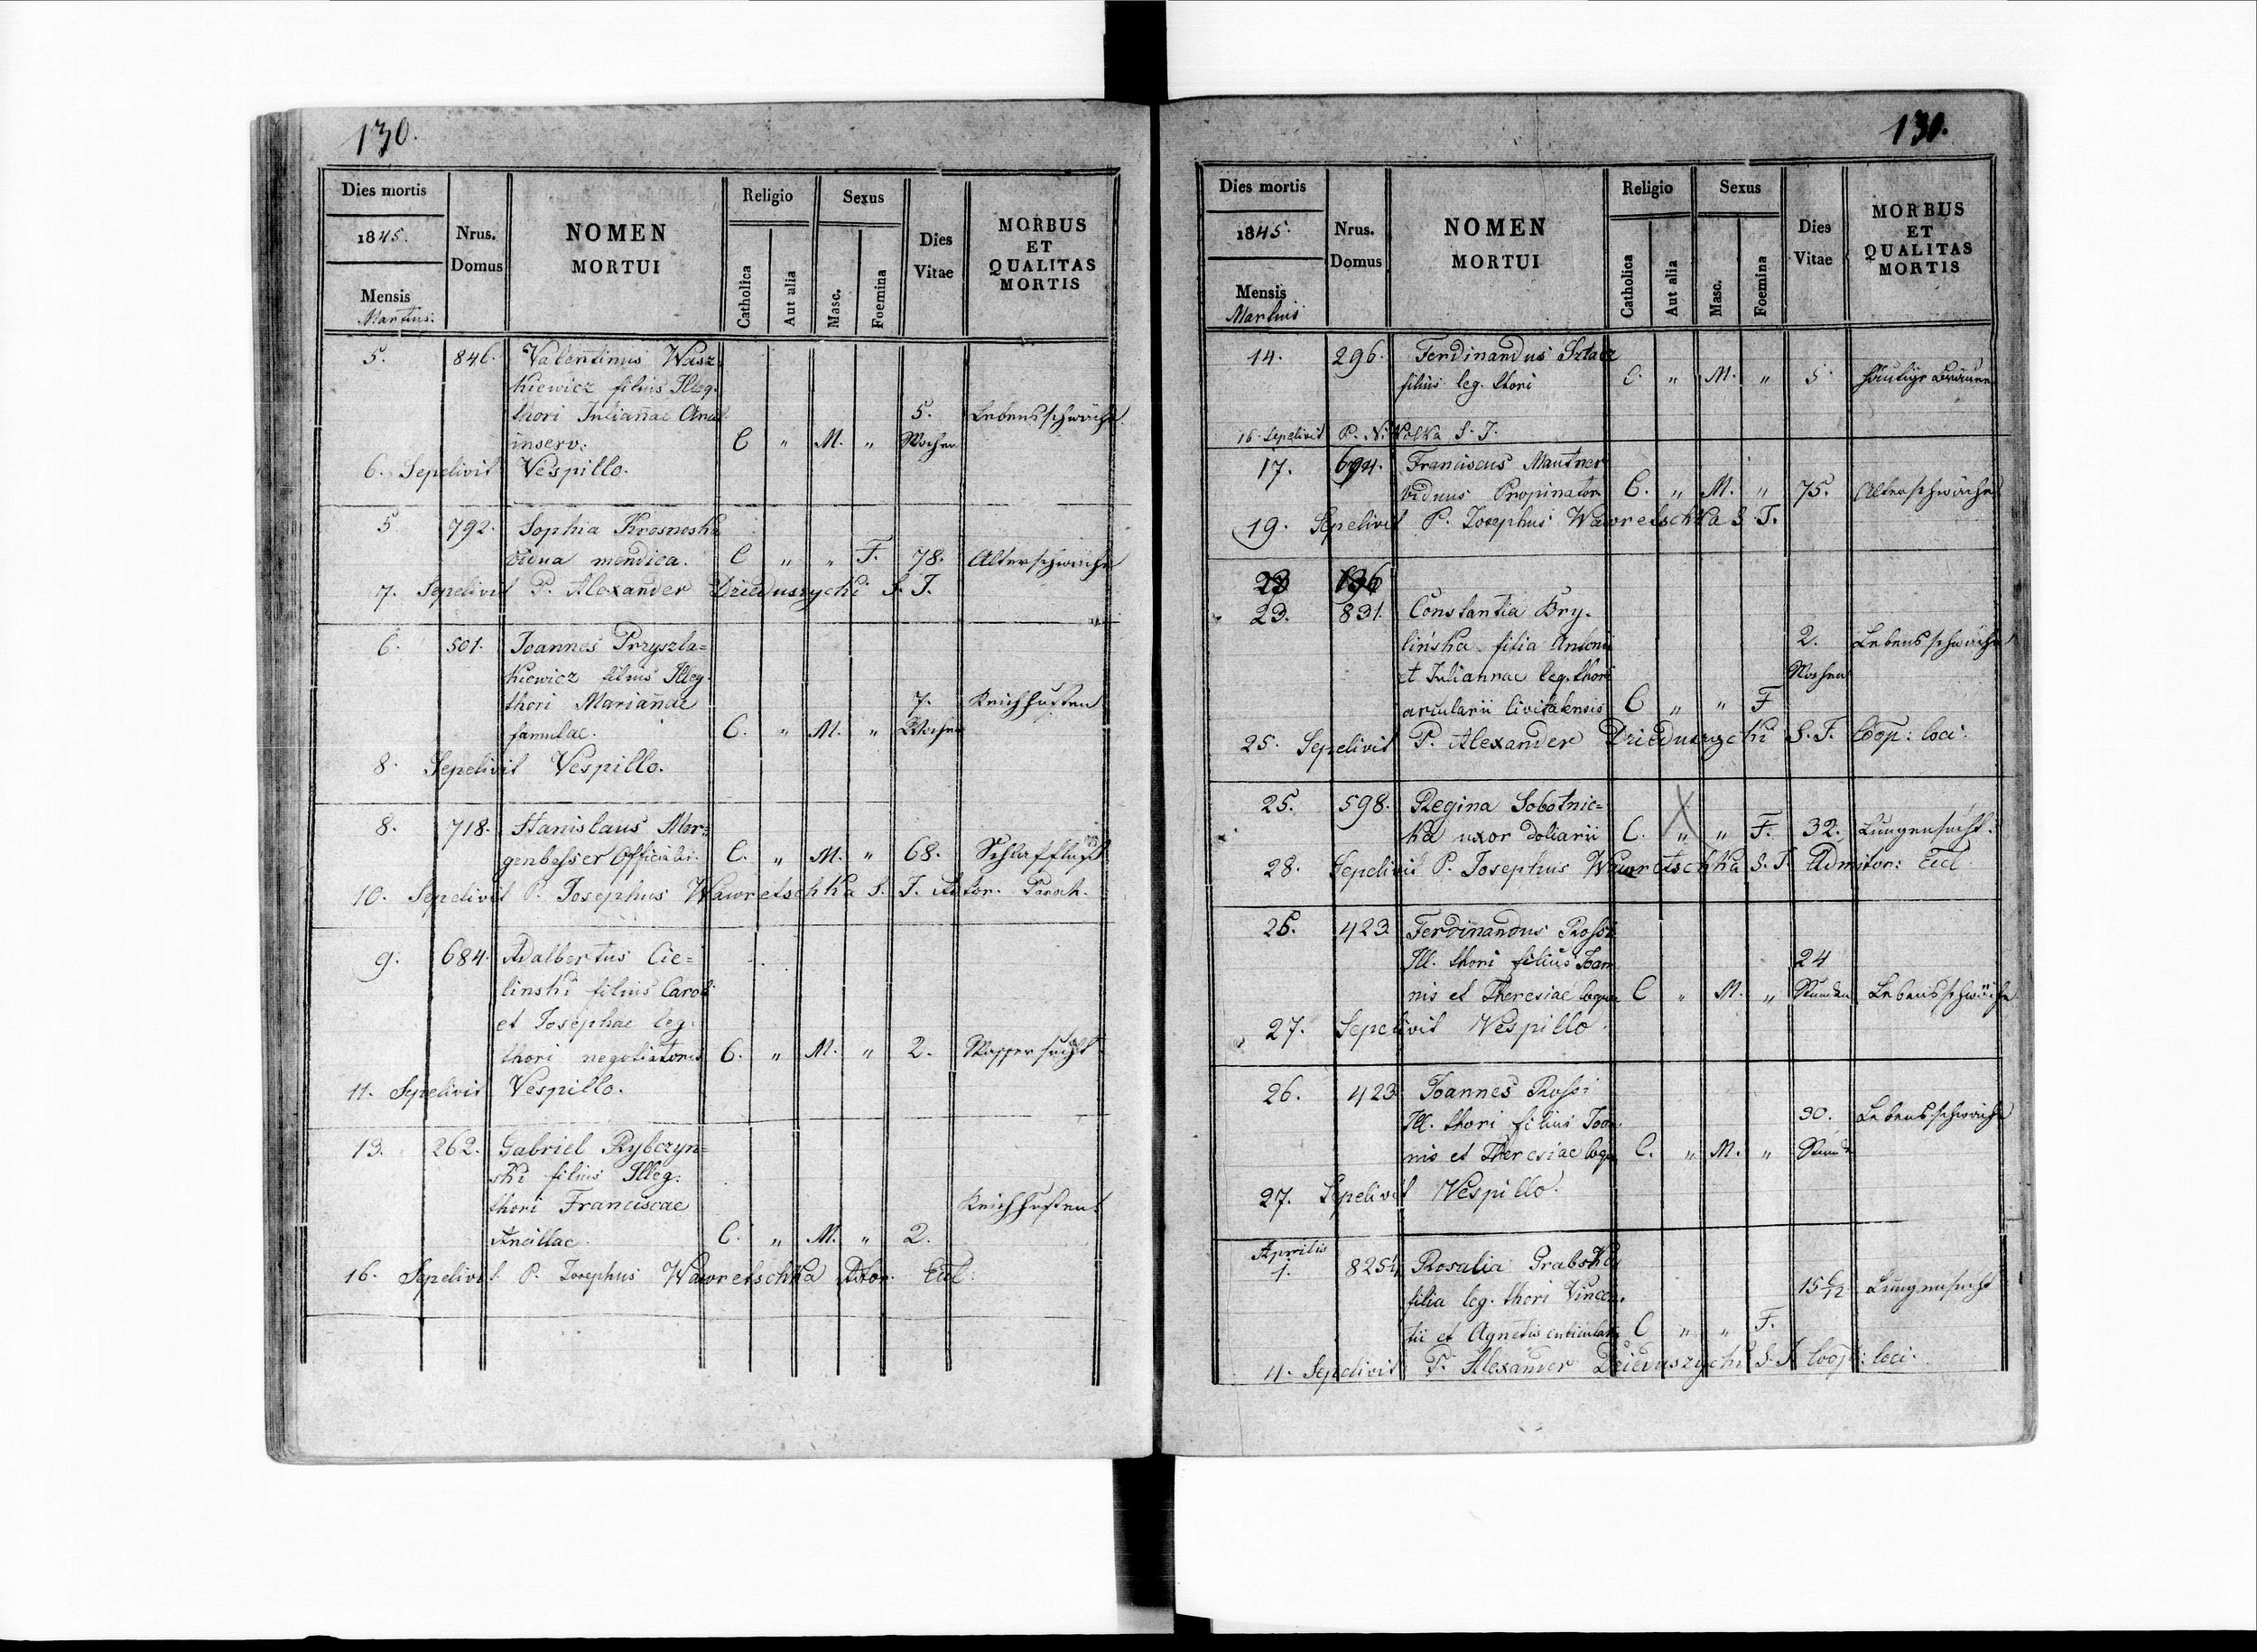 130.
Dies mortis
1845.
Mensis
Martius.
Nrus.
Domus
NOMEN
MORTUI
Religio
Catholica
Aut alia
Sexus
Masc.
Foemina
Dies
Vitae
MORBUS
ET
QUALITAS
MORTIS
5. 846. Valentinus Wasz
kiewicz filius Illeg.
thori Julianae 5. Lebensschwäche.
inserv: C " M. " Wochen
6. Sepelivit Vespillo.
5 792. Sophia Krosnoska
vidua mendica. C " " F. 78. Altersschwäche
7. Sepelivit P. Alexander Dzieduszycki S. J.
6. 501. Joannes Przyszla=
kiewicz filius Illeg.
thori Marianae 7. Keichhusten
famulae. C. " M. " Wochen
8. Sepelivit Vespillo.
8. 718. Stanislaus Mor=
genbesser Officialis. C. " M. " 68. Schlagfluß
10. Sepelivit P. Josephus Wawretschka S. J. Paroch.
9. 684. Adalbertus Cie=
linski filius Caroli
et Josephae leg.
thori negotiatoris C. " M. " 2. Wassersucht
11. Sepelivit Vespillo.
13. 262. Gabriel Rybczyn=
ski filius Illeg.
thori Franciscae Keichhusten
Ancillae. C. " M. " 2.
16. Sepelivit P. Josephus Wawretschka Ator. Eccl:
131.
Dies mortis
1845.
Mensis
Martius
Nrus.
Domus
NOMEN
MORTUI
Religio
Catholica
Aut alia
Sexus
Masc.
Foemina
Dies
Vitae
MORBUS
ET
QUALITAS
MORTIS
14. 296. Ferdinandus Sztarz
filius leg. thori C. " M. " 5 Häutige Bräune
16. Sepelivit P. N. Wolka S. J.
17. 694. Franciscus Mautner
viduus Propinator C. " M. " 75. Altersschwäche
19. Sepelivit P. Josephus Wawretschka S. J.
23. 831. Constantia Bry-
lińska filia Antonii 2. Lebensschwäche
et Juliannae leg. thori Wochen
arcularii Civitatensis C " " F
25. Sepelivit P. Alexander Dzieduszycki S. J. Coop: loci.
25. 598. Regina Sobotnic=
ka uxor doliarii C. " " F. 32. Lungensucht.
28. Sepelivit P. Josephus Wawretschka S. J. Admstor: Eccl.
26. 423 Ferdinandus Rossi
Ill. thori filius Joan 24
nis et Theresiae C " M. " Stunden Lebensschwäche
27. Sepelivit Vespillo.
26. 423 Joannes Rossi
Ill. thori filius Joan 30. Lebensschwäche
nis et Theresiae C. " M. " Stund
27. Sepelivit Vespillo.
Aprilis
1. 825 Rosalia Grabska
filia leg. thori Vincen- 15 6/12 Lungensucht
tii et Agnetis C " " F.
4. Sepelivit P. Alexander Dzieduszycki S. J. Coop: loci.